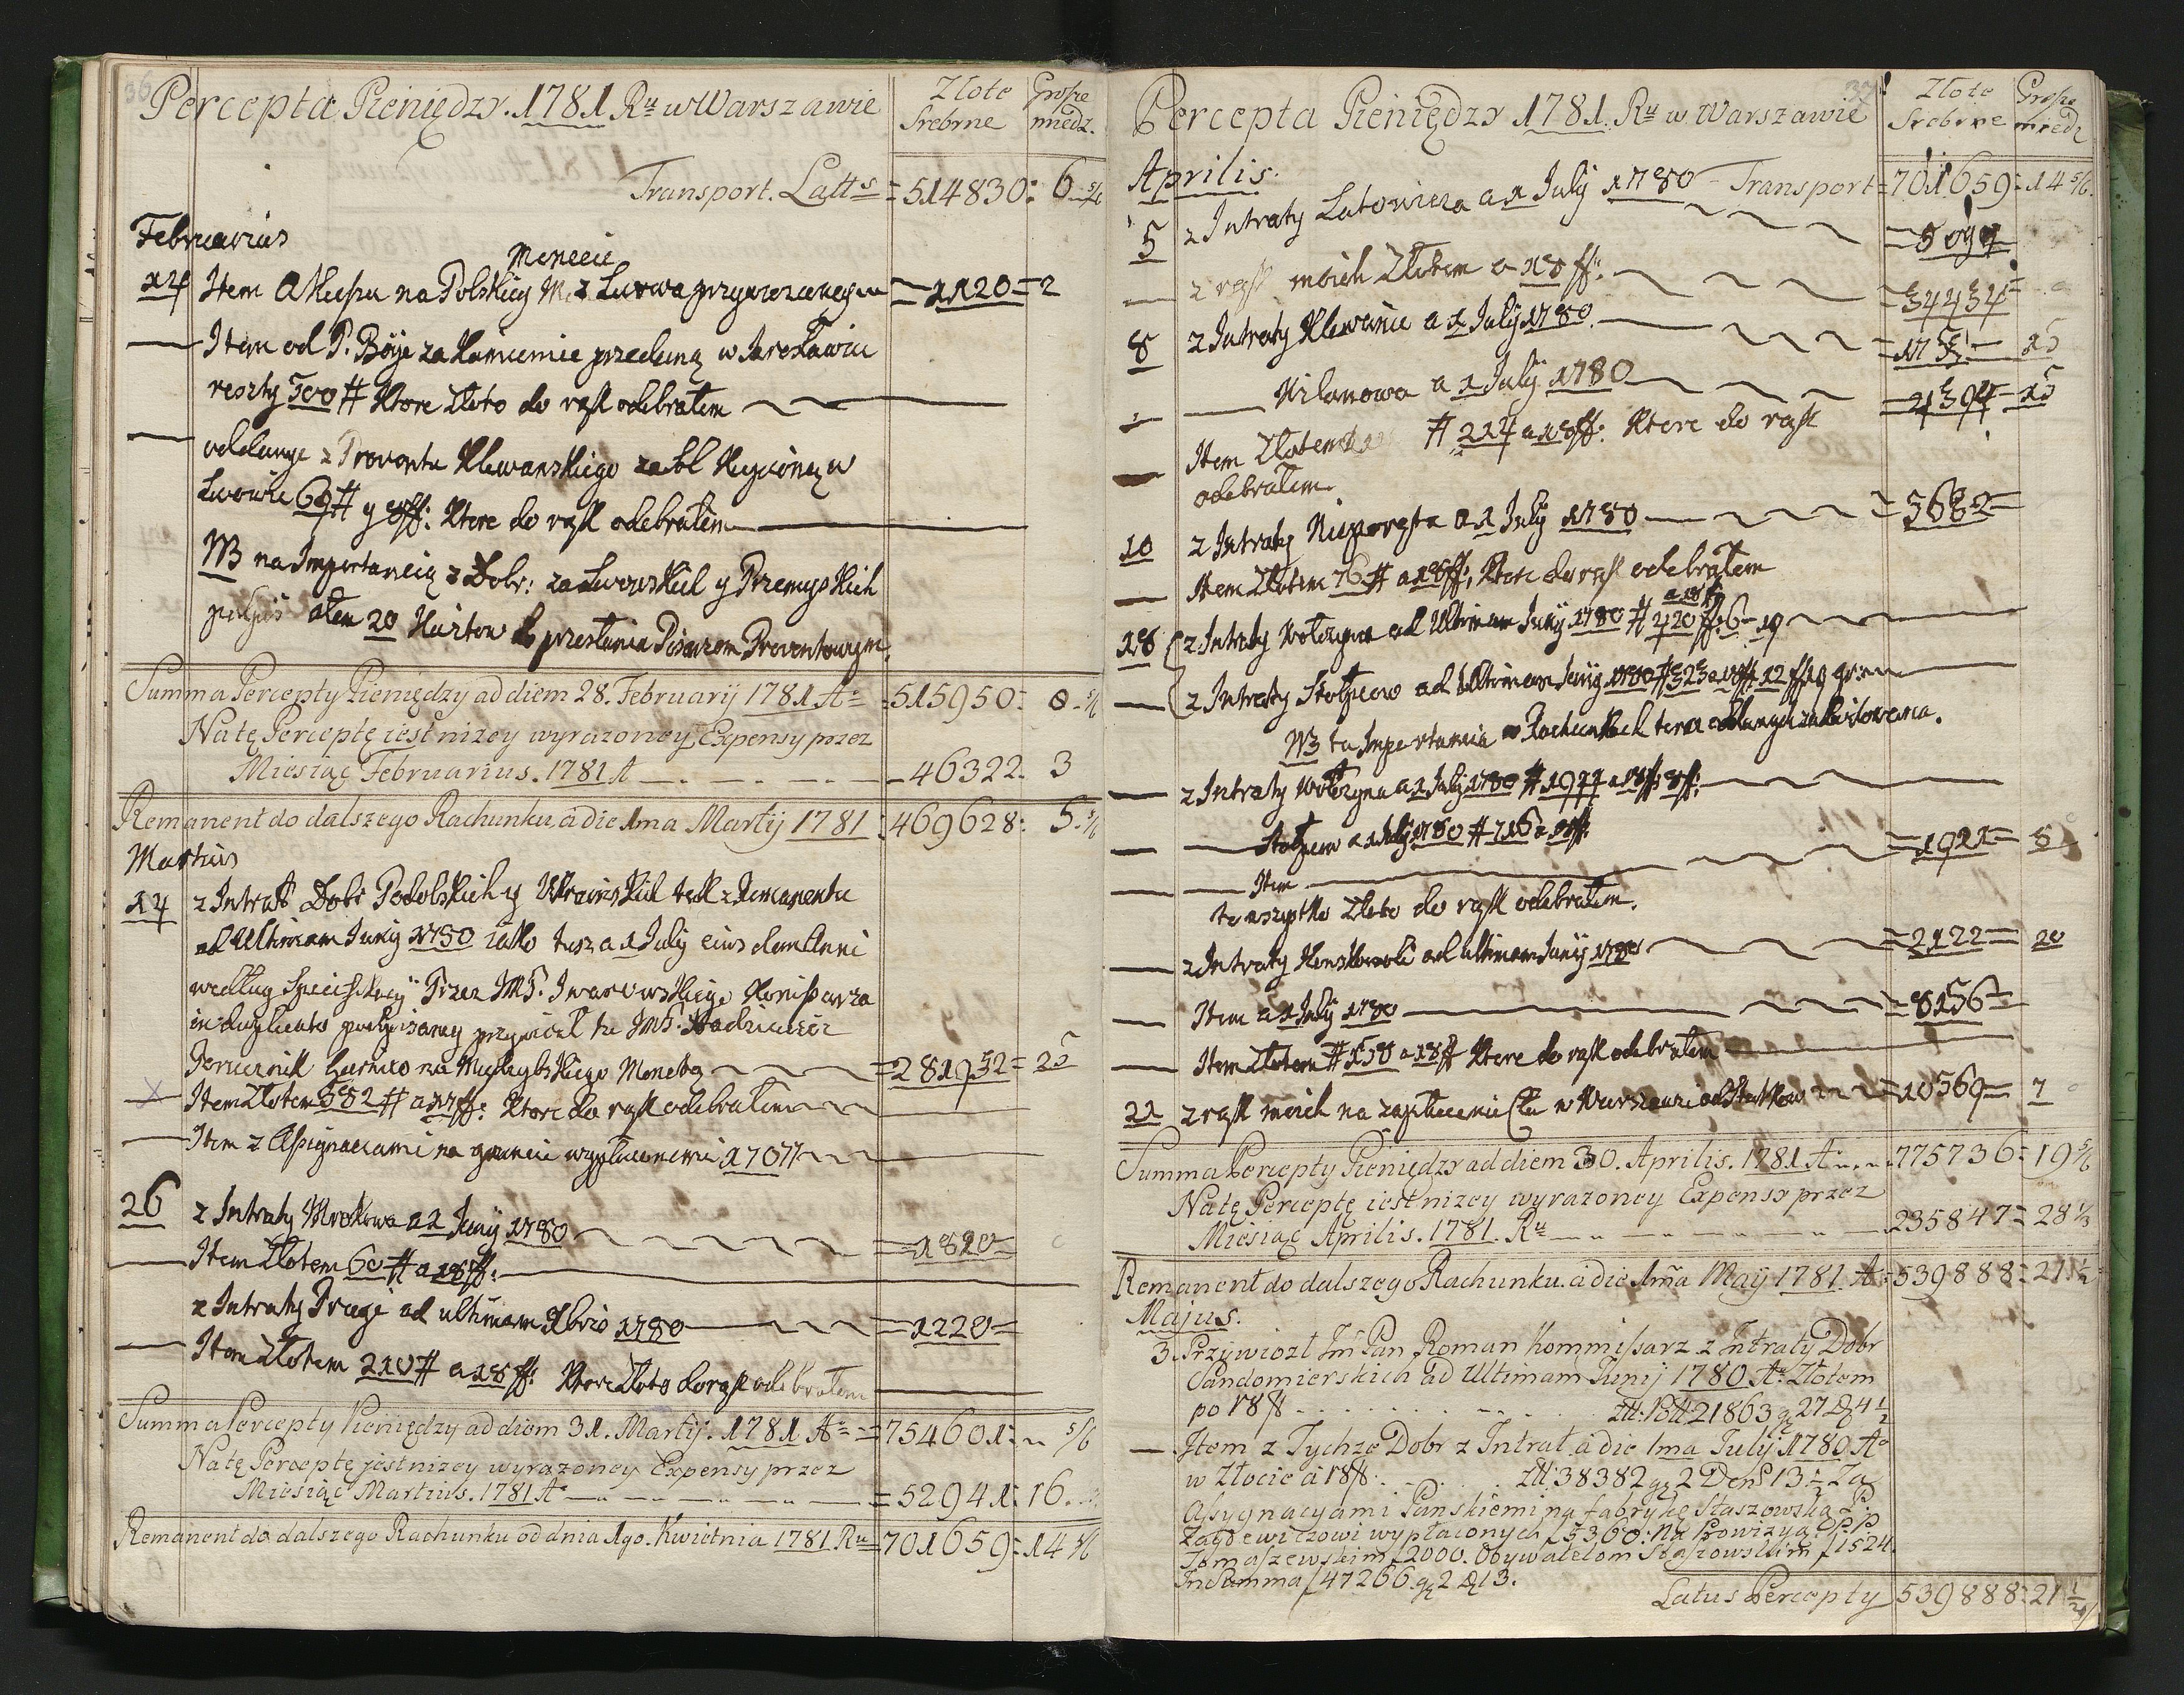 36
Percepta Pieniędzy. 1781. Ru w Warszawie
Złote Srebrne
Grosze miedz.
Transport. Latts = 514830: 6 - 5/6
Februarius
Monecie
14 Item na Polskiey z Lwowa = 1120 = 2
Item od P. Böye za Kamienie przedaną w Jarosławiu
reszty 500 # Ktore złoto do rąk odebrałem
oddanye z Prowentu Klewanskiego za
Lwowie 69 # y 8 ff: Ktore do rąk odebrałem
NB na Importancią z Dobr: za Lwowskich y Przemyskich
20 do przesłania Pisarzom Prowentowym.
Summa Percepty Pieniędzy ad diem 28. Februarij 1781 Ao = 515950: 8 - 5/6
Natę Perceptę iest nizey wyrazoney Expensy przez
Miesiąc Februarius. 1781 A — 46322. 3
Remanent do dalszego Rachunku, a die 1ma Martij 1781 : 469628: 5 - 5/6
Martius
14 z Intrat Dobr Podolskich y Ukrainskich tak z Remanentu
ad Ultimam Junij 1780 iako tesz a 1 July eiusdem Anni
według Specifikacyi Przez JMP. Iwarowskiego Komisarza
in duplicato podpisaney tu JMP.
na Moneta = 281952 = 25
Item Złotem 582 # a 17 ff: Ktore do rąk odebrałem
Item z Assignaciami na wypłaconemi 17077
26 z Intraty Mrokowa a 1 Junij 1780 = 1820 =
Item Złotem 60 # a 18 ff:
z Intraty Pragi ad ultimam Xbris 1780 = 1220 =
Item Złotem 210 # a 18 ff: Ktore Złoto do rąk odebrałem
Summa Percepty Pieniędzy ad diem 31. Martij. 1781. Ao = 754601: „ 5/6
Natę Perceptę jest nizey wyrazoney Expensy przez
Miesiąc Martius. 1781 Ao = 52941: 16.
Remanent do dalszego Rachunku od dnia 1go. Kwietnia 1781. Ru = 701659: 14 5/6
37
Percepta Pieniędzy 1781. Ru w Warszawie
Złote Srebrne
Grosze miedz
Aprilis. Transport = 701659: 14 5/6
5 z Intraty Latowicza a 1 July 1780 = 5099
z rąk moich Złotem a 18 ff: = 34434 =
8 z Intraty Klewanie a 1 July 1780 15
Wilanowa a 1 July 1780 = 4394 = 15
Item Złotem # 214 a 18 ff: Ktore do rąk
odebrałem.
10 z Intraty Nieporęta a 1 July 1780 = 3682 =
Item Złotem 76 # a 18 ff: Ktore do rąk odebrałem
a 18 ff
18 z Intraty Wołczyna ad Ultimam Junij 1780 # 420 ff: 6 - 19
z Intraty Stołpcow ad Ultimam Junij 1780 # 323 a 18 ff 12 ff 19 gr:
NB ta Importancia w Rachunkach
z Intraty Wołczyna a 1 July 1780 # 1977 a 18 ff: 8 ff:
Stołpcow a 1 July 1780 # 716 a 18 ff:
Item = 1921 = 8
to wszystko Złoto do rąk odebrałem.
z Intraty Konskowoli ad ultimam Junij 1780 = 2122 = 20
Item a 1 July 1780 = 8156 =
Item Złotem # 158 a 18 ff Ktore do rąk odebrałem
21 z rąk moich na zapłacenie Cła w Warszawie od Statkow = 10569 = 7
Summa Percepty Pieniędzy ad diem 30. Aprilis. 1781. Ao 775736: 19 5/6
Natę Perceptę iest nizey wyrazoney Expensy przez
Miesiąc Aprilis. 1781. Ru 235847 = 28 1/3
Remanent do dalszego Rachunku. a die 1ma Maij 1781. A = 539888 = 21 1/2
Majus.
3. Przywiozł Jm Pan Roman Kommissarz z Intraty Dobr
Sandomierskich ad Ultimam Junij 1780 Ao. Złotem
po 18 ff 21863 gr 27 d 4 1/2
Item z Tychze Dobr z Intrat a die 1ma Julij 1780. Ao
w Złocie a 18 ff: Zll: 38382 gr 2 Den 13 1/2 Za
Assygnacyami Panskiemi na fabrykę Staszowską P.
wypłaconych f 5360: Na Prowizyą PP.
Tomaszewskim f 2000. Obywatelom Staszowskim f 1524.
In Summa f 47266 gr 2 d 13.
Latus Percepty 539888: 21 1/2